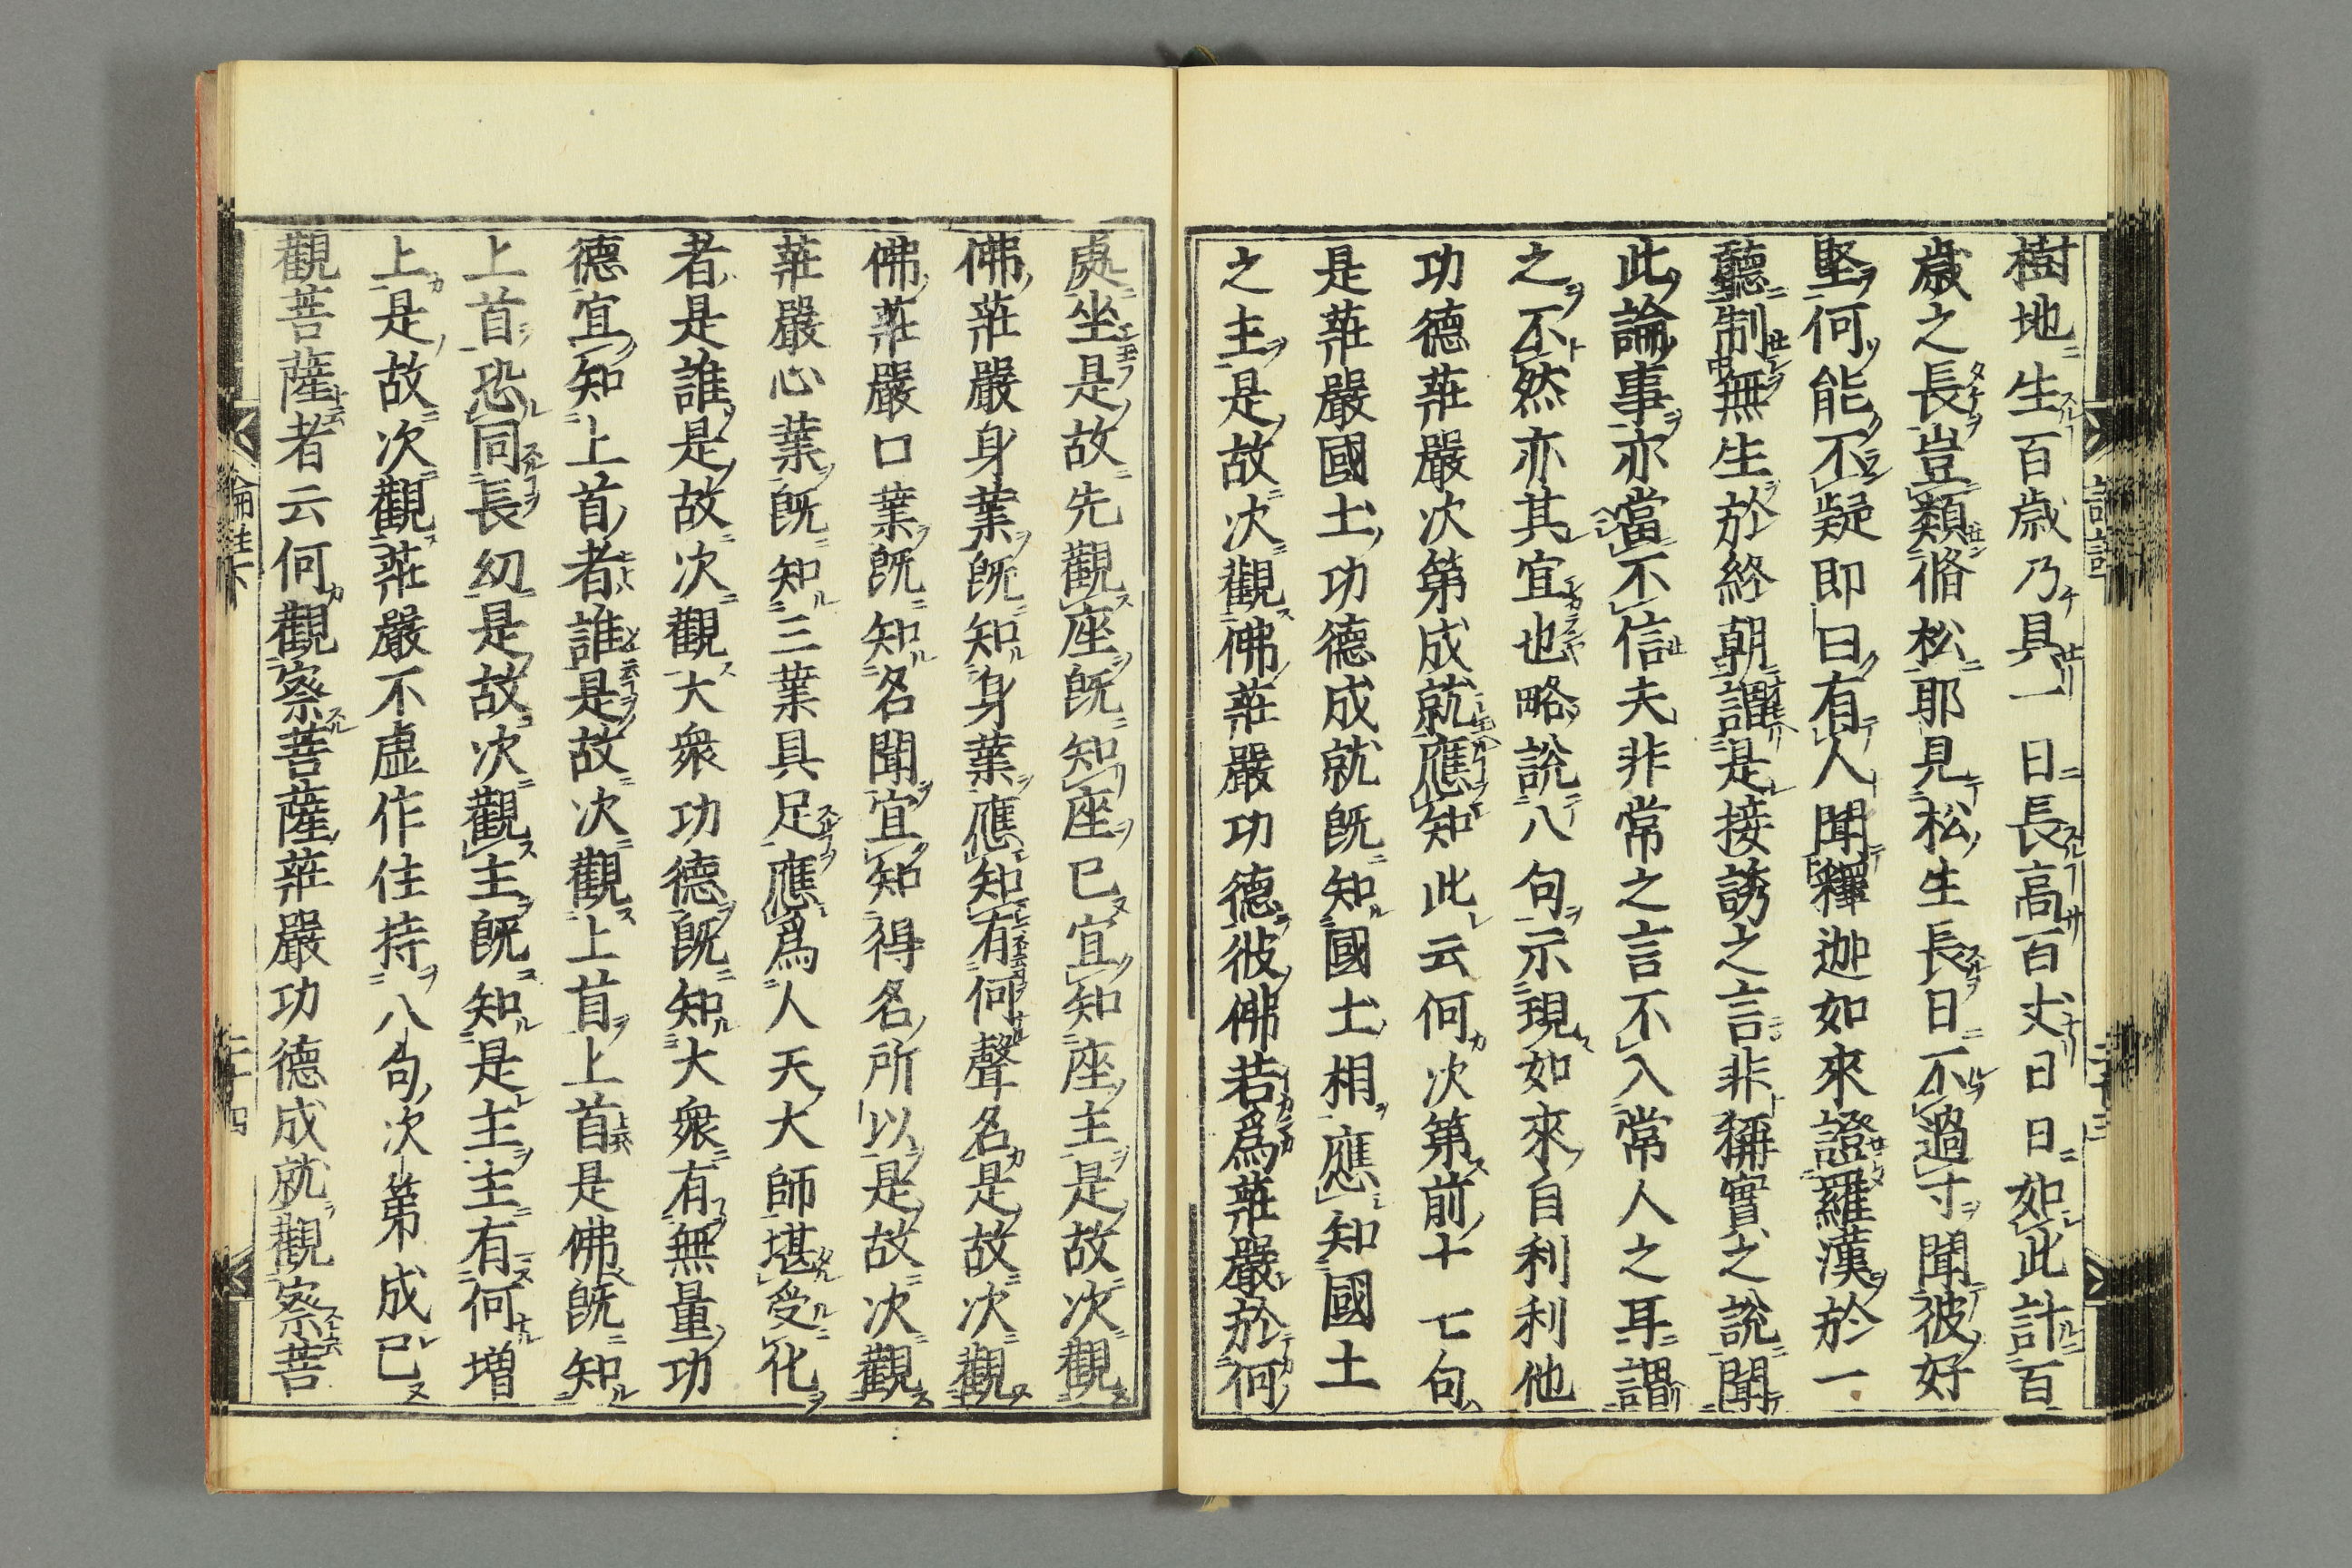 樹地生百歳乃具一日長高百丈日日如此計百
歳之長豈類脩松耶見松生長日不過寸聞彼好
堅何能不疑即曰有人聞釋迦如來證羅漢於一
聽制無生於終朝謂是接誘之言非稱實之說聞
此論事亦當不信夫非常之言不入常人之耳謂
之不然亦其宜也略說八句示現如來自利利他
功德莊嚴次第成就應知此云何次第前十七句
是莊嚴國土功德成就既知國土相應知國土
之主是故次觀佛莊嚴功德彼佛若爲莊嚴於何
處坐是故先觀座既知座已宜知座主是故次觀
佛莊嚴身業既知身業應知有何聲名是故次觀
佛莊嚴口業既知名聞宜知得名所以是故次觀
莊嚴心業既知三業具足應爲人天大師堪受化
者是誰是故次觀大衆功德既知大衆有無量功
德宜知上首者誰是故次觀上首上首是佛既知
上首恐同長幼是故次觀主既知是主主有何増
上是故次觀莊嚴不虚作住持八句次第成已
觀菩薩者云何觀察菩薩莊嚴功德成就觀察菩
論註下
二十四